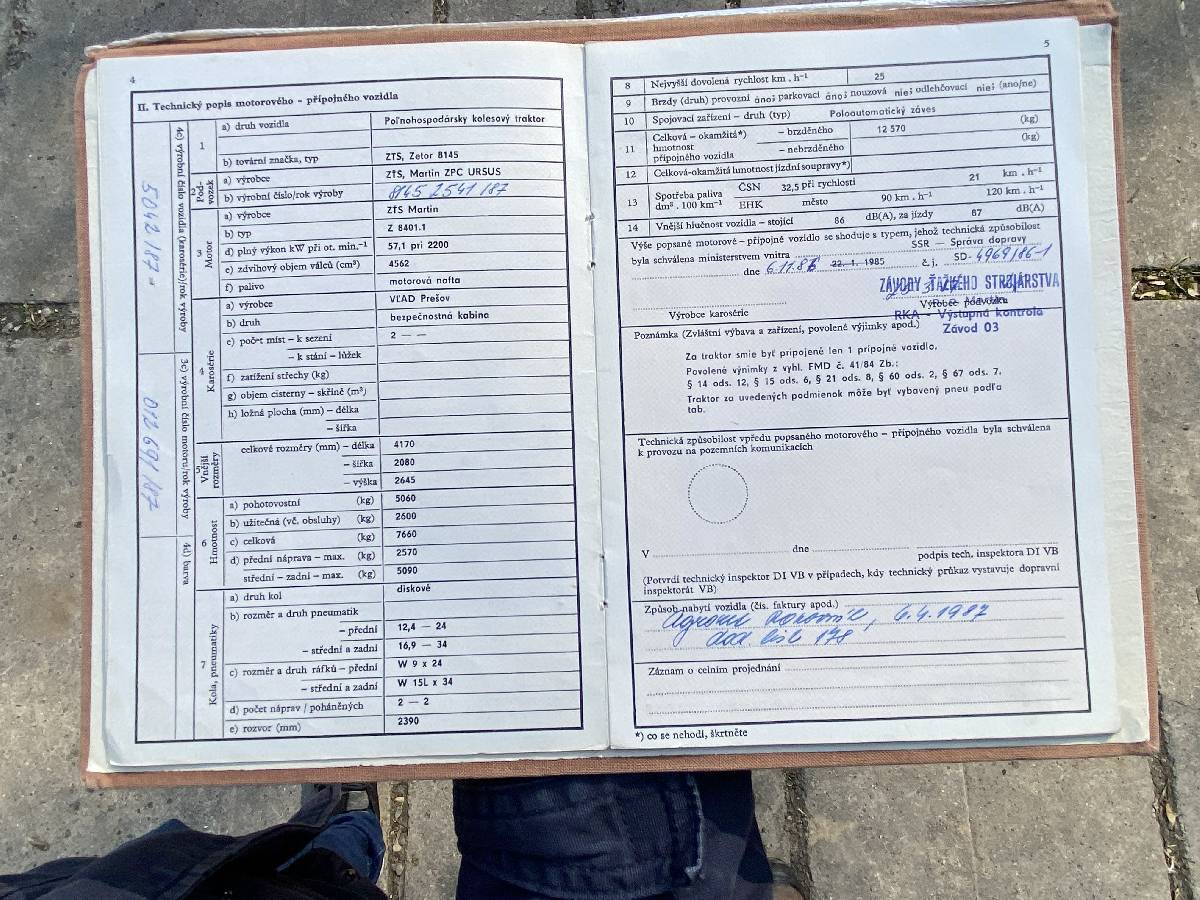 4
II. Technický popis motorového – přípojného vozidla
4c) výrobní číslo vozidla (karosérie)/rok výroby
5042/87
3c) výrobní číslo motoru/rok výroby
012691/87
4d) barva
1
a) druh vozidla
Poľnohospodársky kolesový traktor
b) tovární značka, typ
ZTS, Zetor 8145
2 Pod-vozek
a) výrobce
ZŤS, Martin ZPC URSUS
b) výrobní číslo/rok výroby
8145 2541/87
3 Motor
a) výrobce
ZŤS Martin
b) typ
Z 8401.1
d) plný výkon kW při ot. min.⁻¹
57,1 pri 2200
e) zdvihový objem válců (cm³)
4562
f) palivo
motorová nafta
4 Karosérie
a) výrobce
VĽAD Prešov
b) druh
bezpečnostná kabína
e) počet míst – k sezení
2 — —
– k stání – lůžek
f) zatížení střechy (kg)
g) objem cisterny – skříně (m³)
h) ložná plocha (mm) – délka
– šířka
5 Vnější rozměry
celkové rozměry (mm) – délka
4170
– šířka
2080
– výška
2645
6 Hmotnost
a) pohotovostní (kg)
5060
b) užitečná (vč. obsluhy) (kg)
2600
c) celková (kg)
7660
d) přední náprava – max. (kg)
2570
střední – zadní – max. (kg)
5090
7 Kola, pneumatiky
a) druh kol
diskové
b) rozměr a druh pneumatik
– přední
12,4 — 24
– střední a zadní
16,9 — 34
c) rozměr a druh ráfků – přední
W 9 x 24
– střední a zadní
W 15L x 34
d) počet náprav / poháněných
2 — 2
e) rozvor (mm)
2390
5
8 Nejvyšší dovolená rychlost km . h⁻¹ 25
9 Brzdy (druh) provozní áno; parkovací áno; nouzová nie; odlehčovací nie; (ano/ne)
10 Spojovací zařízení – druh (typ) Poloautomatický záves
11 Celková – okamžitá*) hmotnost přípojného vozidla
– brzděného 12 570 (kg)
– nebrzděného (kg)
12 Celková-okamžitá hmotnost jízdní soupravy*)
13 Spotřeba paliva dm³ . 100 km⁻¹
ČSN 32,5 při rychlosti 21 km . h⁻¹
EHK město 90 km . h⁻¹ 120 km . h⁻¹
14 Vnější hlučnost vozidla – stojící 86 dB(A), za jízdy 87 dB(A)
Výše popsané motorové – přípojné vozidlo se shoduje s typem, jehož technická způsobilost
byla schválena ministerstvem vnitra SSR — Správa dopravy
dne 6.11.86 22.1.1985 č. j. SD- 4969/86-1
ZÁVODY ŤAŽKÉHO STROJÁRSTVA
Výrobce karosérie
Výrobce podvozku
RKA - Výstupná kontrola
Závod 03
Poznámka (Zvláštní výbava a zařízení, povolené výjimky apod.)
Za traktor smie byť pripojené len 1 prípojné vozidlo.
Povolené výnimky z vyhl. FMD č. 41/84 Zb.:
§ 14 ods. 12, § 15 ods. 6, § 21 ods. 8, § 60 ods. 2, § 67 ods. 7.
Traktor za uvedených podmienok môže byť vybavený pneu podľa
tab.
Technická způsobilost vpředu popsaného motorového – přípojného vozidla byla schválena
k provozu na pozemních komunikacích
V dne
podpis tech. inspektora DI VB
(Potvrdí technický inspektor DI VB v případech, kdy technický průkaz vystavuje dopravní
inspektorát VB)
Způsob nabytí vozidla (čís. faktury apod.)
6.4.1987
178
Záznam o celním projednání
*) co se nehodí, škrtněte